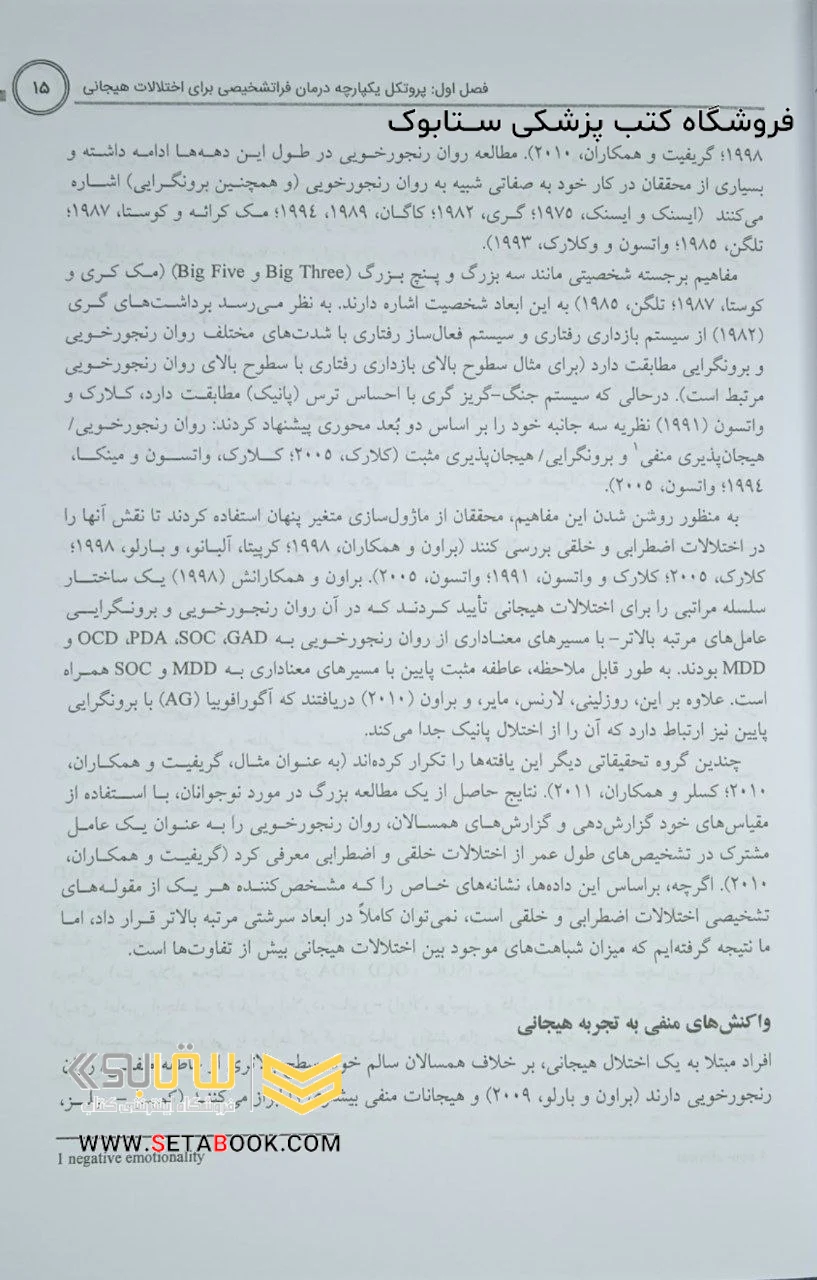 فصل اول: پروتکل یکپارچه درمان فراتشخیصی برای اختلالات هیجانی
۱۵
فروشگاه کتب پزشکی ستابوک
۱۹۹۸؛ گریفیت و همکاران، ۲۰۱۰). مطالعه روان رنجورخویی در طول این دهه‌ها ادامه داشته و
بسیاری از محققان در کار خود به صفاتی شبیه به روان رنجورخویی (و همچنین برونگرایی) اشاره
می‌کنند (ایسنک و ایسنک، ۱۹۷۵؛ گری، ۱۹۸۲؛ کاگان، ۱۹۸۹، ۱۹۹٤؛ مک کرائه و کوستا، ۱۹۸۷؛
تلگن، ۱۹۸۵؛ واتسون و وکلارک، ۱۹۹۳).
مفاهیم برجسته شخصیتی مانند سه بزرگ و پنج بزرگ (Big Three و Big Five) (مک کری و
کوستا، ۱۹۸۷؛ تلگن، ۱۹۸۵) به این ابعاد شخصیت اشاره دارند. به نظر می‌رسد برداشت‌های گری
(۱۹۸۲) از سیستم بازداری رفتاری و سیستم فعال‌ساز رفتاری با شدت‌های مختلف روان رنجورخویی
و برونگرایی مطابقت دارد (برای مثال سطوح بالای بازداری رفتاری با سطوح بالای روان رنجورخویی
مرتبط است). درحالی که سیستم جنگ-گریز گری با احساس ترس (پانیک) مطابقت دارد، کلارک و
واتسون (۱۹۹۱) نظریه سه جانبه خود را بر اساس دو بُعد محوری پیشنهاد کردند: روان رنجورخویی/
هیجان‌پذیری منفی۱ و برونگرایی/ هیجان‌پذیری مثبت (کلارک، ۲۰۰۵؛ کلارک، واتسون و مینکا،
۱۹۹٤؛ واتسون، ۲۰۰۵).
به منظور روشن شدن این مفاهیم، محققان از ماژول‌سازی متغیر پنهان استفاده کردند تا نقش آنها را
در اختلالات اضطرابی و خلقی بررسی کنند (براون و همکاران، ۱۹۹۸؛ کرپیتا، آلبانو، و بارلو، ۱۹۹۸؛
کلارک، ۲۰۰۵؛ کلارک و واتسون، ۱۹۹۱؛ واتسون، ۲۰۰۵). براون و همکارانش (۱۹۹۸) یک ساختار
سلسله مراتبی را برای اختلالات هیجانی تأیید کردند که در آن روان رنجورخویی و برونگرایی
عامل‌های مرتبه بالاتر- با مسیرهای معناداری از روان رنجورخویی به OCD ،PDA ،SOC ،GAD و
MDD بودند. به طور قابل ملاحظه، عاطفه مثبت پایین با مسیرهای معناداری به MDD و SOC همراه
است. علاوه بر این، روزلینی، لارنس، مایر، و براون (۲۰۱۰) دریافتند که آگورافوبیا (AG) با برونگرایی
پایین نیز ارتباط دارد که آن را از اختلال پانیک جدا می‌کند.
چندین گروه تحقیقاتی دیگر این یافته‌ها را تکرار کرده‌اند (به عنوان مثال، گریفیت و همکاران،
۲۰۱۰؛ کسلر و همکاران، ۲۰۱۱). نتایج حاصل از یک مطالعه بزرگ در مورد نوجوانان، با استفاده از
مقیاس‌های خود گزارش‌دهی و گزارش‌های همسالان، روان رنجورخویی را به عنوان یک عامل
مشترک در تشخیص‌های طول عمر از اختلالات خلقی و اضطرابی معرفی کرد (گریفیت و همکاران،
۲۰۱۰). اگرچه، براساس این داده‌ها، نشانه‌های خاص را که مشخص‌کننده هر یک از مقوله‌های
تشخیصی اختلالات اضطرابی و خلقی است، نمی‌توان کاملاً در ابعاد سرشتی مرتبه بالاتر قرار داد، اما
ما نتیجه گرفته‌ایم که میزان شباهت‌های موجود بین اختلالات هیجانی بیش از تفاوت‌ها است.
واکنش‌های منفی به تجربه هیجانی
افراد مبتلا به یک اختلال هیجانی، بر خلاف همسالان سالم خود سطح بالاتری از عاطفه منفی
رنجورخویی دارند (براون و بارلو، ۲۰۰۹) و هیجانات منفی بیشتری را ابراز می‌کنند
ستابوک
فروشگاه اینترنتی کتاب
WWW.SETABOOK.COM
1 negative emotionality